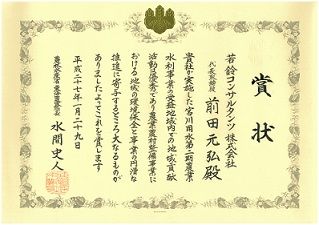 賞状
若鈴コンサルタンツ株式会社
代表取締役 前田元弘殿
貴社が実施した宮川用水第二期農業
水利事業の受益地域内での地域貢献
活動は優秀であり農業農村整備事業に
おける地域の環境保全と事業の円滑な
推進に寄与するところ大なるものが
ありましたよってこれを賞します
平成二十七年一月二十九日
水間史人